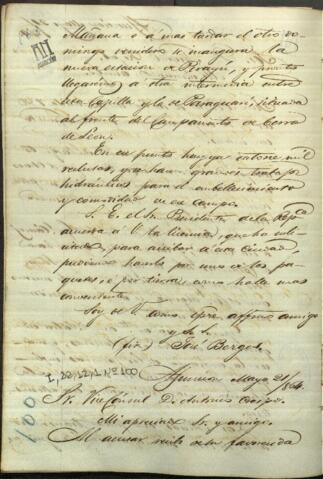 Mañana o a mas tardar el otro do-
mingo venidero se inaugura la
nueva estacion de Pirayú, y pronto
llegaremos a otra intermedia entre
esta Capilla y la de Paraguari, situada
al frente del Campamento de Cerro
de Leon.
En ese punto hay ya catorce mil
reclutas, y se hacen grandes trabajos
hidraulicos para el embellecimiento
y comodidad de ese campo.
S. E. el Sr. Presidente de la Repca
acuerda a V. la licencia, que ha soli-
citado, para venir a esa Ciudad,
pudiendo hacerlo por uno de los pa-
quetes, o por tierra, como halle mas
conveniente.
Soy de V. como spre. affmo. amigo
y S. S.
(fir.) José Berges.
Asuncion Mayo 21/864.
Sr. Vice Consul D. Antonio
Mi apreciado Sr. y amigo.
Al acusar recibo de su favorecida
I, 22, 12, 1 Nº 100
100